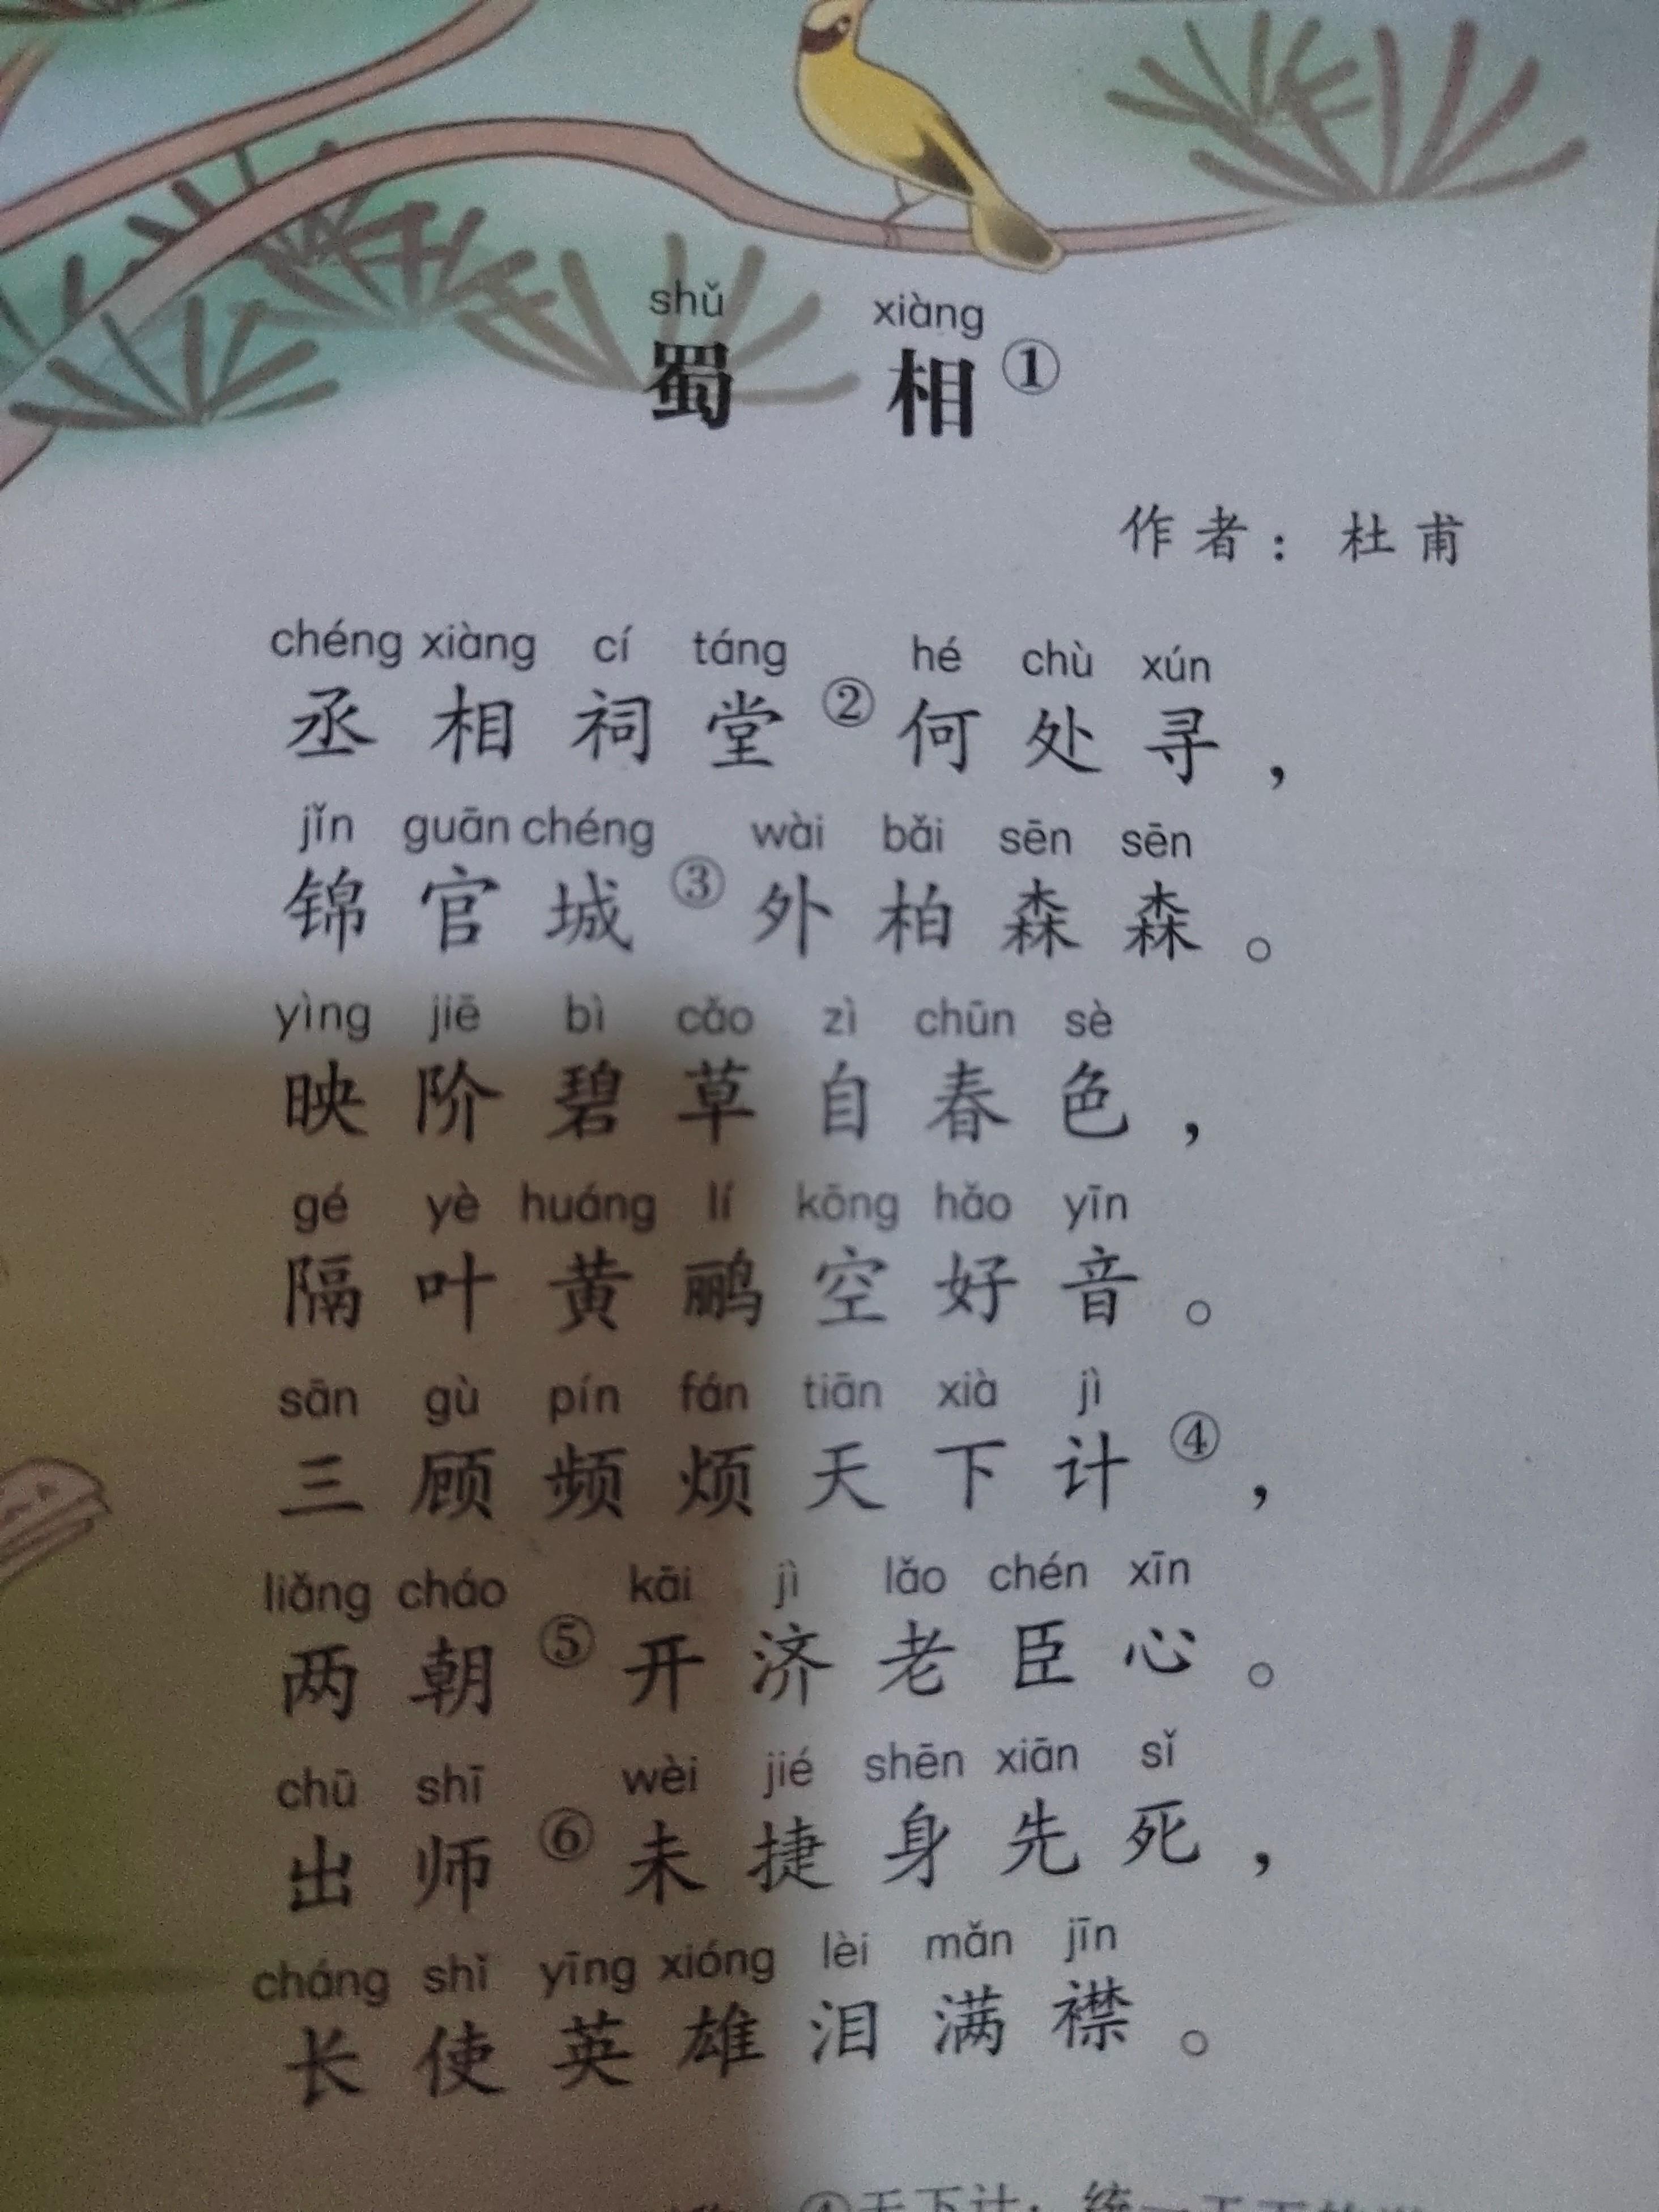 shǔ xiàng
蜀 相①
作者：杜甫
chéng xiàng cí táng hé chù xún
丞相祠堂②何处寻，
jǐn guān chéng wài bǎi sēn sēn
锦官城③外柏森森。
yìng jiē bì cǎo zì chūn sè
映阶碧草自春色，
gé yè huáng lí kōng hǎo yīn
隔叶黄鹂空好音。
sān gù pín fán tiān xià jì
三顾频烦天下计④，
liǎng cháo kāi jì lǎo chén xīn
两朝⑤开济老臣心。
chū shī wèi jié shēn xiān sǐ
出师⑥未捷身先死，
cháng shǐ yīng xióng lèi mǎn jīn
长使英雄泪满襟。
④天下计：统一天下的